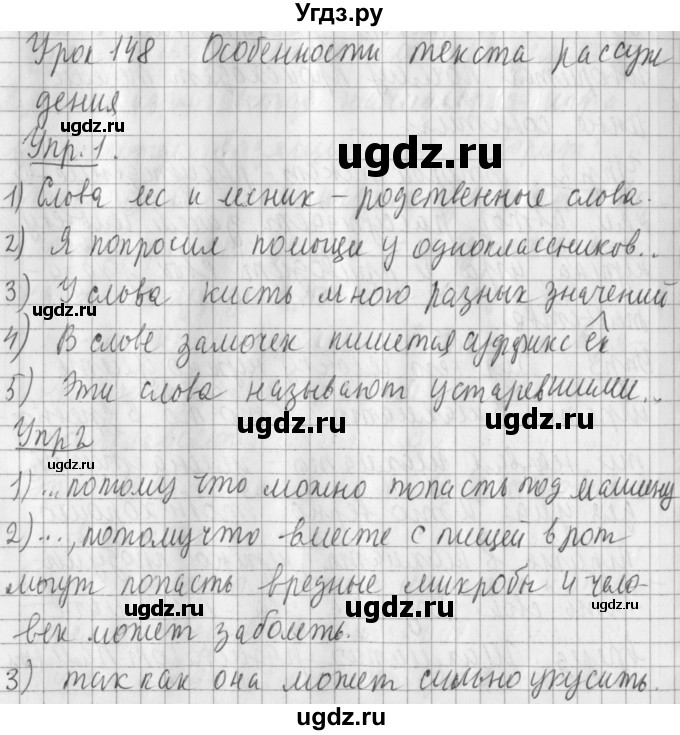 Угдз.ру
Урок 148 Особенности текста рассуж
дения
ugdz.ru
ugdz.ru
Упр. 1.
1) Слова лес и лесник – родственные слова.
2) Я попросил помощи у одноклассников..
3) У слова кисть много разных значений
ugdz.ru
ugdz.ru
4) В слове замочек пишется суффикс ек
5) Эти слова называют устаревшими..
ugdz.ru
ugdz.ru
Упр 2
ugdz.ru
1) ... потому что можно попасть под машину
2) ..., потому что вместе с пищей в рот
могут попасть вредные микробы и чело-
ugdz.ru
ugdz.ru
век может заболеть.
3) так как она может сильно укусить.
ugdz.ru
ugdz.ru